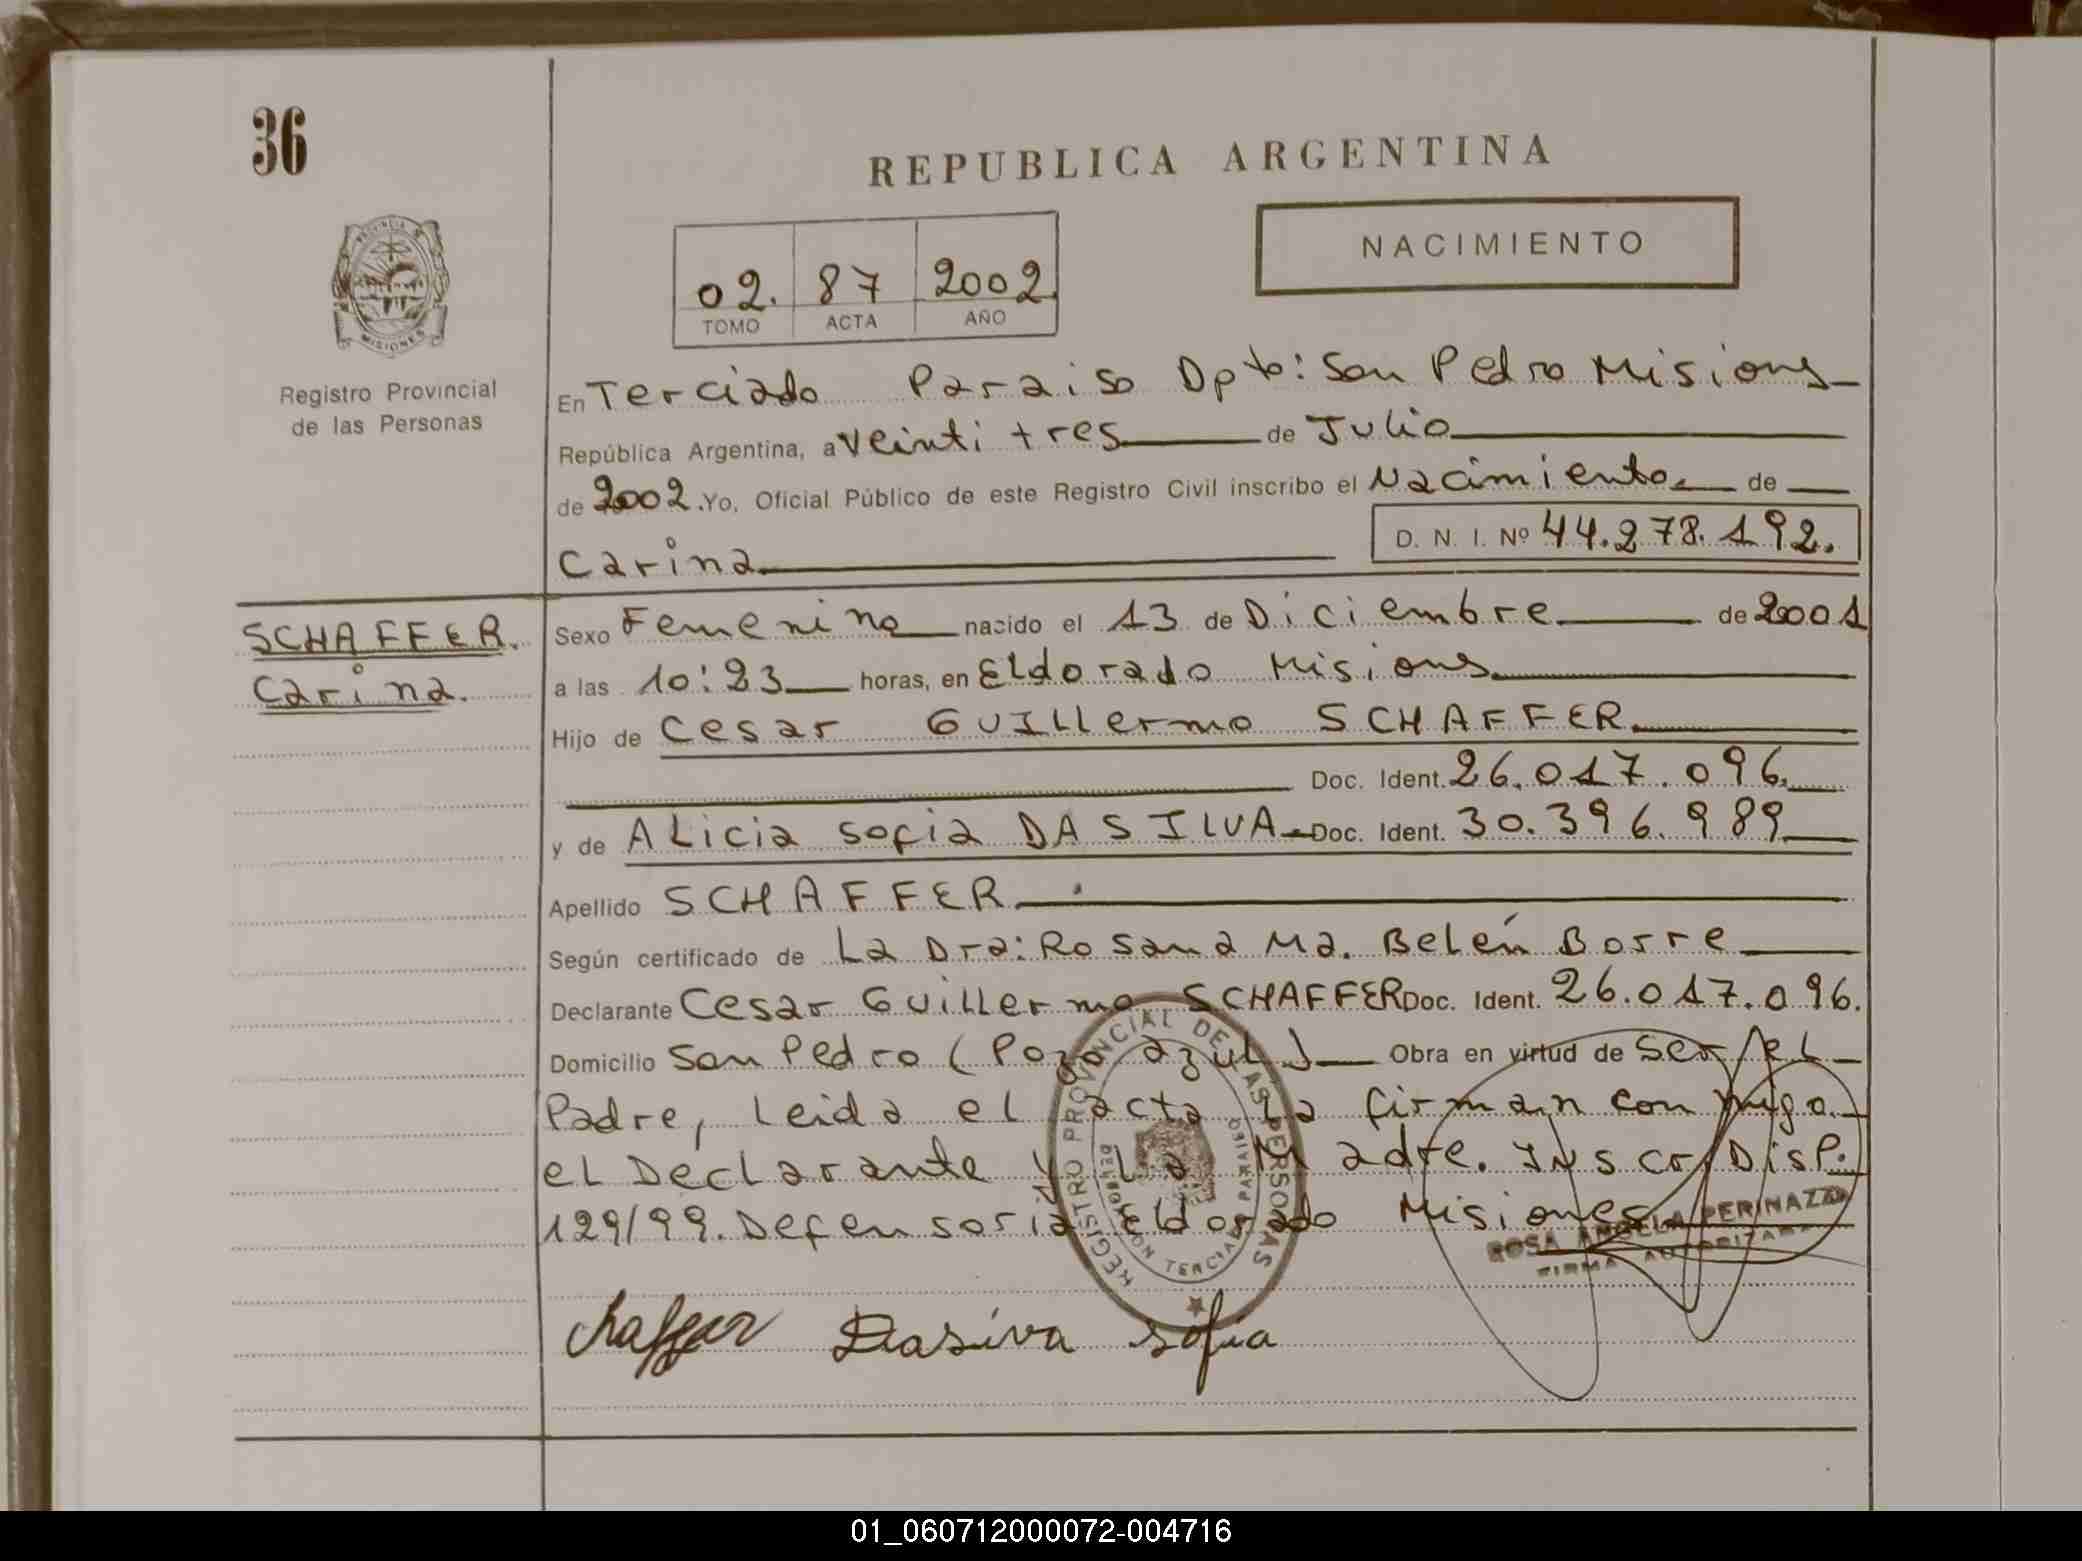 36
REPUBLICA ARGENTINA
NACIMIENTO
02. 87 2002
TOMO ACTA AÑO
PROVINCIA D
MISIONES
Registro Provincial
de las Personas
En Terciado Paraiso Dpto: San Pedro Misiones
República Argentina, a Veinti tres de Julio
de 2002. Yo, Oficial Público de este Registro Civil inscribo el Nacimiento de
D. N. I. Nº 44.278.192.
Carina
SCHAFFER.
Carina.
Sexo Femenino nacido el 13 de Diciembre de 2001
a las 10:23 horas, en Eldorado Misiones
Hijo de Cesar GUILLermo SCHAFFER
Doc. Ident. 26.017.096.
y de ALicia Sofia DA SILVA Doc. Ident. 30.396.989
Apellido SCHAFFER
Según certificado de La Dra: Rosana Ma. Belén Borre
Declarante Cesar Guillermo SCHAFFER Doc. Ident. 26.017.096.
Domicilio San Pedro (Pozo azul) Obra en virtud de ser el
Padre, Leida el acta La firman conmigo
el Declarante y La Madre. Inscr. Disp.
129/99. Defensoria Eldorado Misiones
REGISTRO PROVINCIAL DE LAS PERSONAS
DELEGACION TERCIADO PARAISO
ROSA ANGELA PERINAZZO
FIRMA AUTORIZADA
chaffer Dasiva sofia
01_060712000072-004716